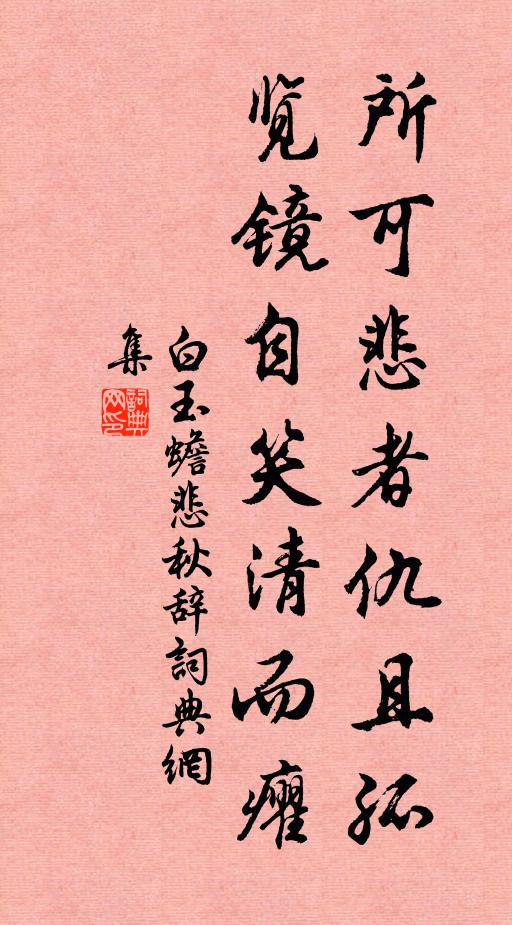 所可悲者仇且孤
览镜自笑清而癯
白玉蟾悲秋辞詞典網
集
詞典网印